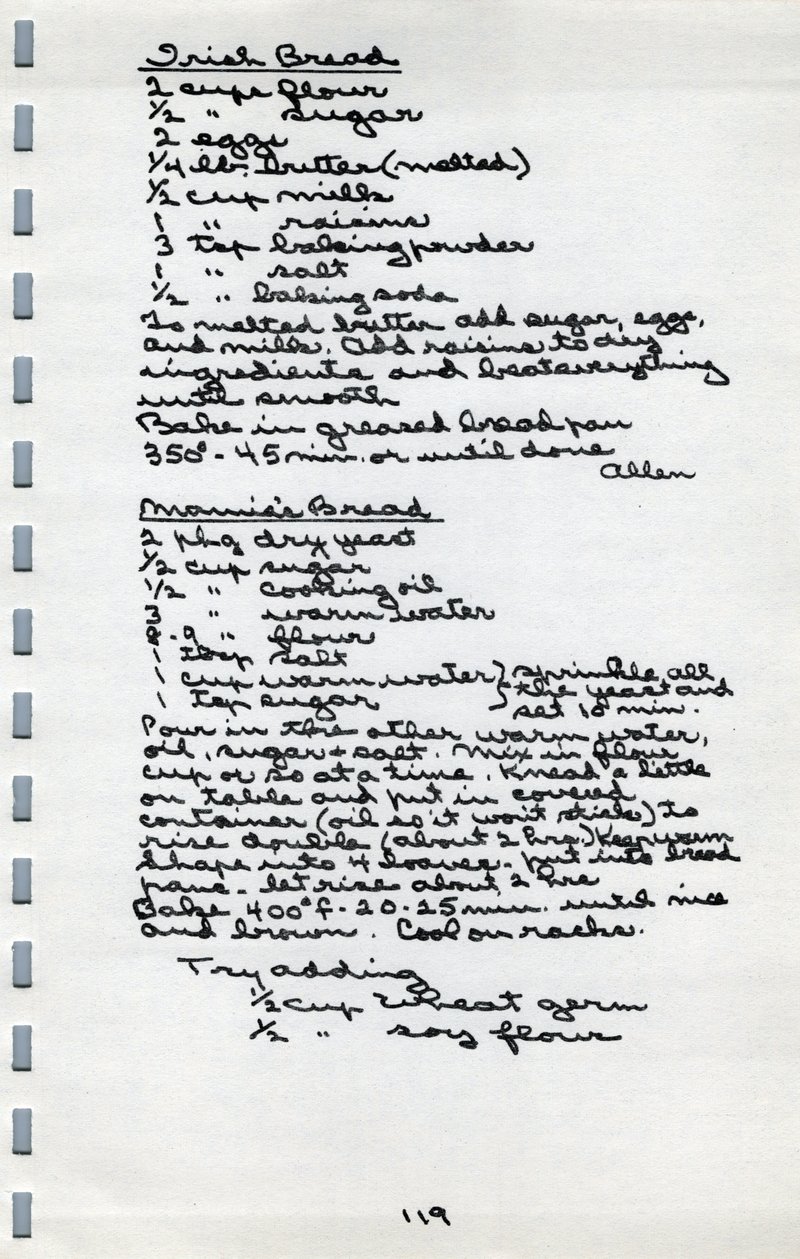 Irish Bread
2 cups flour
1/2 " sugar
2 eggs
1/4 lb. butter (melted)
1/2 cup milk
1 " raisins
3 tsp baking powder
1 " salt
1/2 " baking soda
To melted butter add sugar, eggs,
and milk. Add raisins to dry
ingredients and beat everything
until smooth
Bake in greased bread pan
350° - 45 min. or until done
Allen
Mamie's Bread
2 pkg dry yeast
1/2 cup sugar
1/2 " cooking oil
3 " warm water
8-9 " flour
1 tbsp salt
1 cup warm water } sprinkle all
1 tsp sugar } the yeast and
set 10 min.
Pour in the other warm water,
oil, sugar + salt. Mix in flour
cup or so at a time. Knead a little
on table and put in covered
container (oil so it won't stick) to
rise double (about 2 hrs.) Keep warm
shape into 4 loaves - put into bread
pans - let rise about 2 hrs
Bake 400° f - 20-25 min. until nice
and brown. Cool on racks.
Try adding
1/2 cup wheat germ
1/2 " soy flour
119